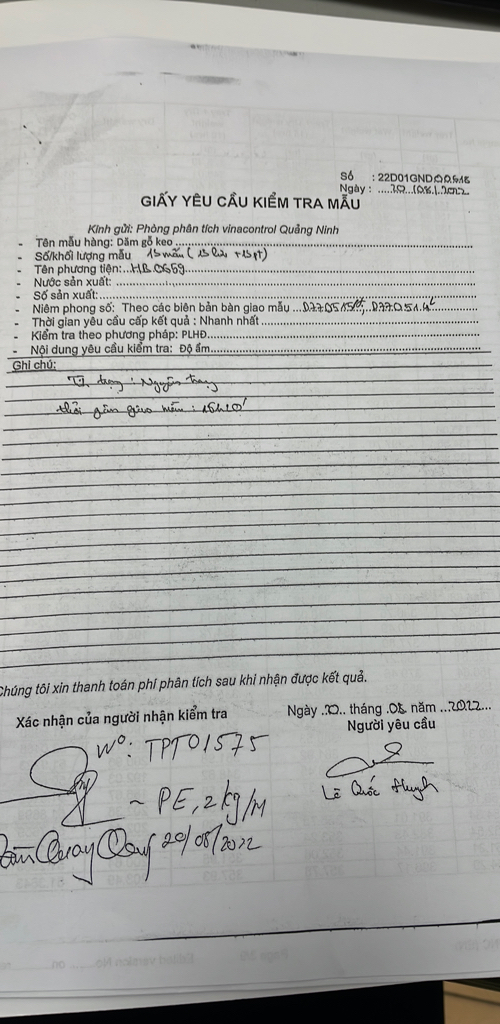 Số : 22D01GND00818
Ngày : ....20...108.1.2022
GIẤY YÊU CẦU KIỂM TRA MẪU
Kính gửi: Phòng phân tích vinacontrol Quảng Ninh
- Tên mẫu hàng: Dăm gỗ keo
- Số/khối lượng mẫu 15 mẫu ( 15 lưu + 15 pt)
- Tên phương tiện: HB 0669
- Nước sản xuất:
- Số sản xuất:
- Niêm phong số: Theo các biên bản bàn giao mẫu
- Thời gian yêu cầu cấp kết quả : Nhanh nhất
- Kiểm tra theo phương pháp: PLHĐ
- Nội dung yêu cầu kiểm tra: Độ ẩm
Ghi chú:
Tr dạng : Nguyên trạng
thời gian giao mẫu : 15h20'
Chúng tôi xin thanh toán phí phân tích sau khi nhận được kết quả.
Ngày .20.. tháng .08 năm ..2022...
Xác nhận của người nhận kiểm tra
Người yêu cầu
Wº: TPT01575
Lê Quốc Huynh
~ PE, 2kg/M
20/08/2022